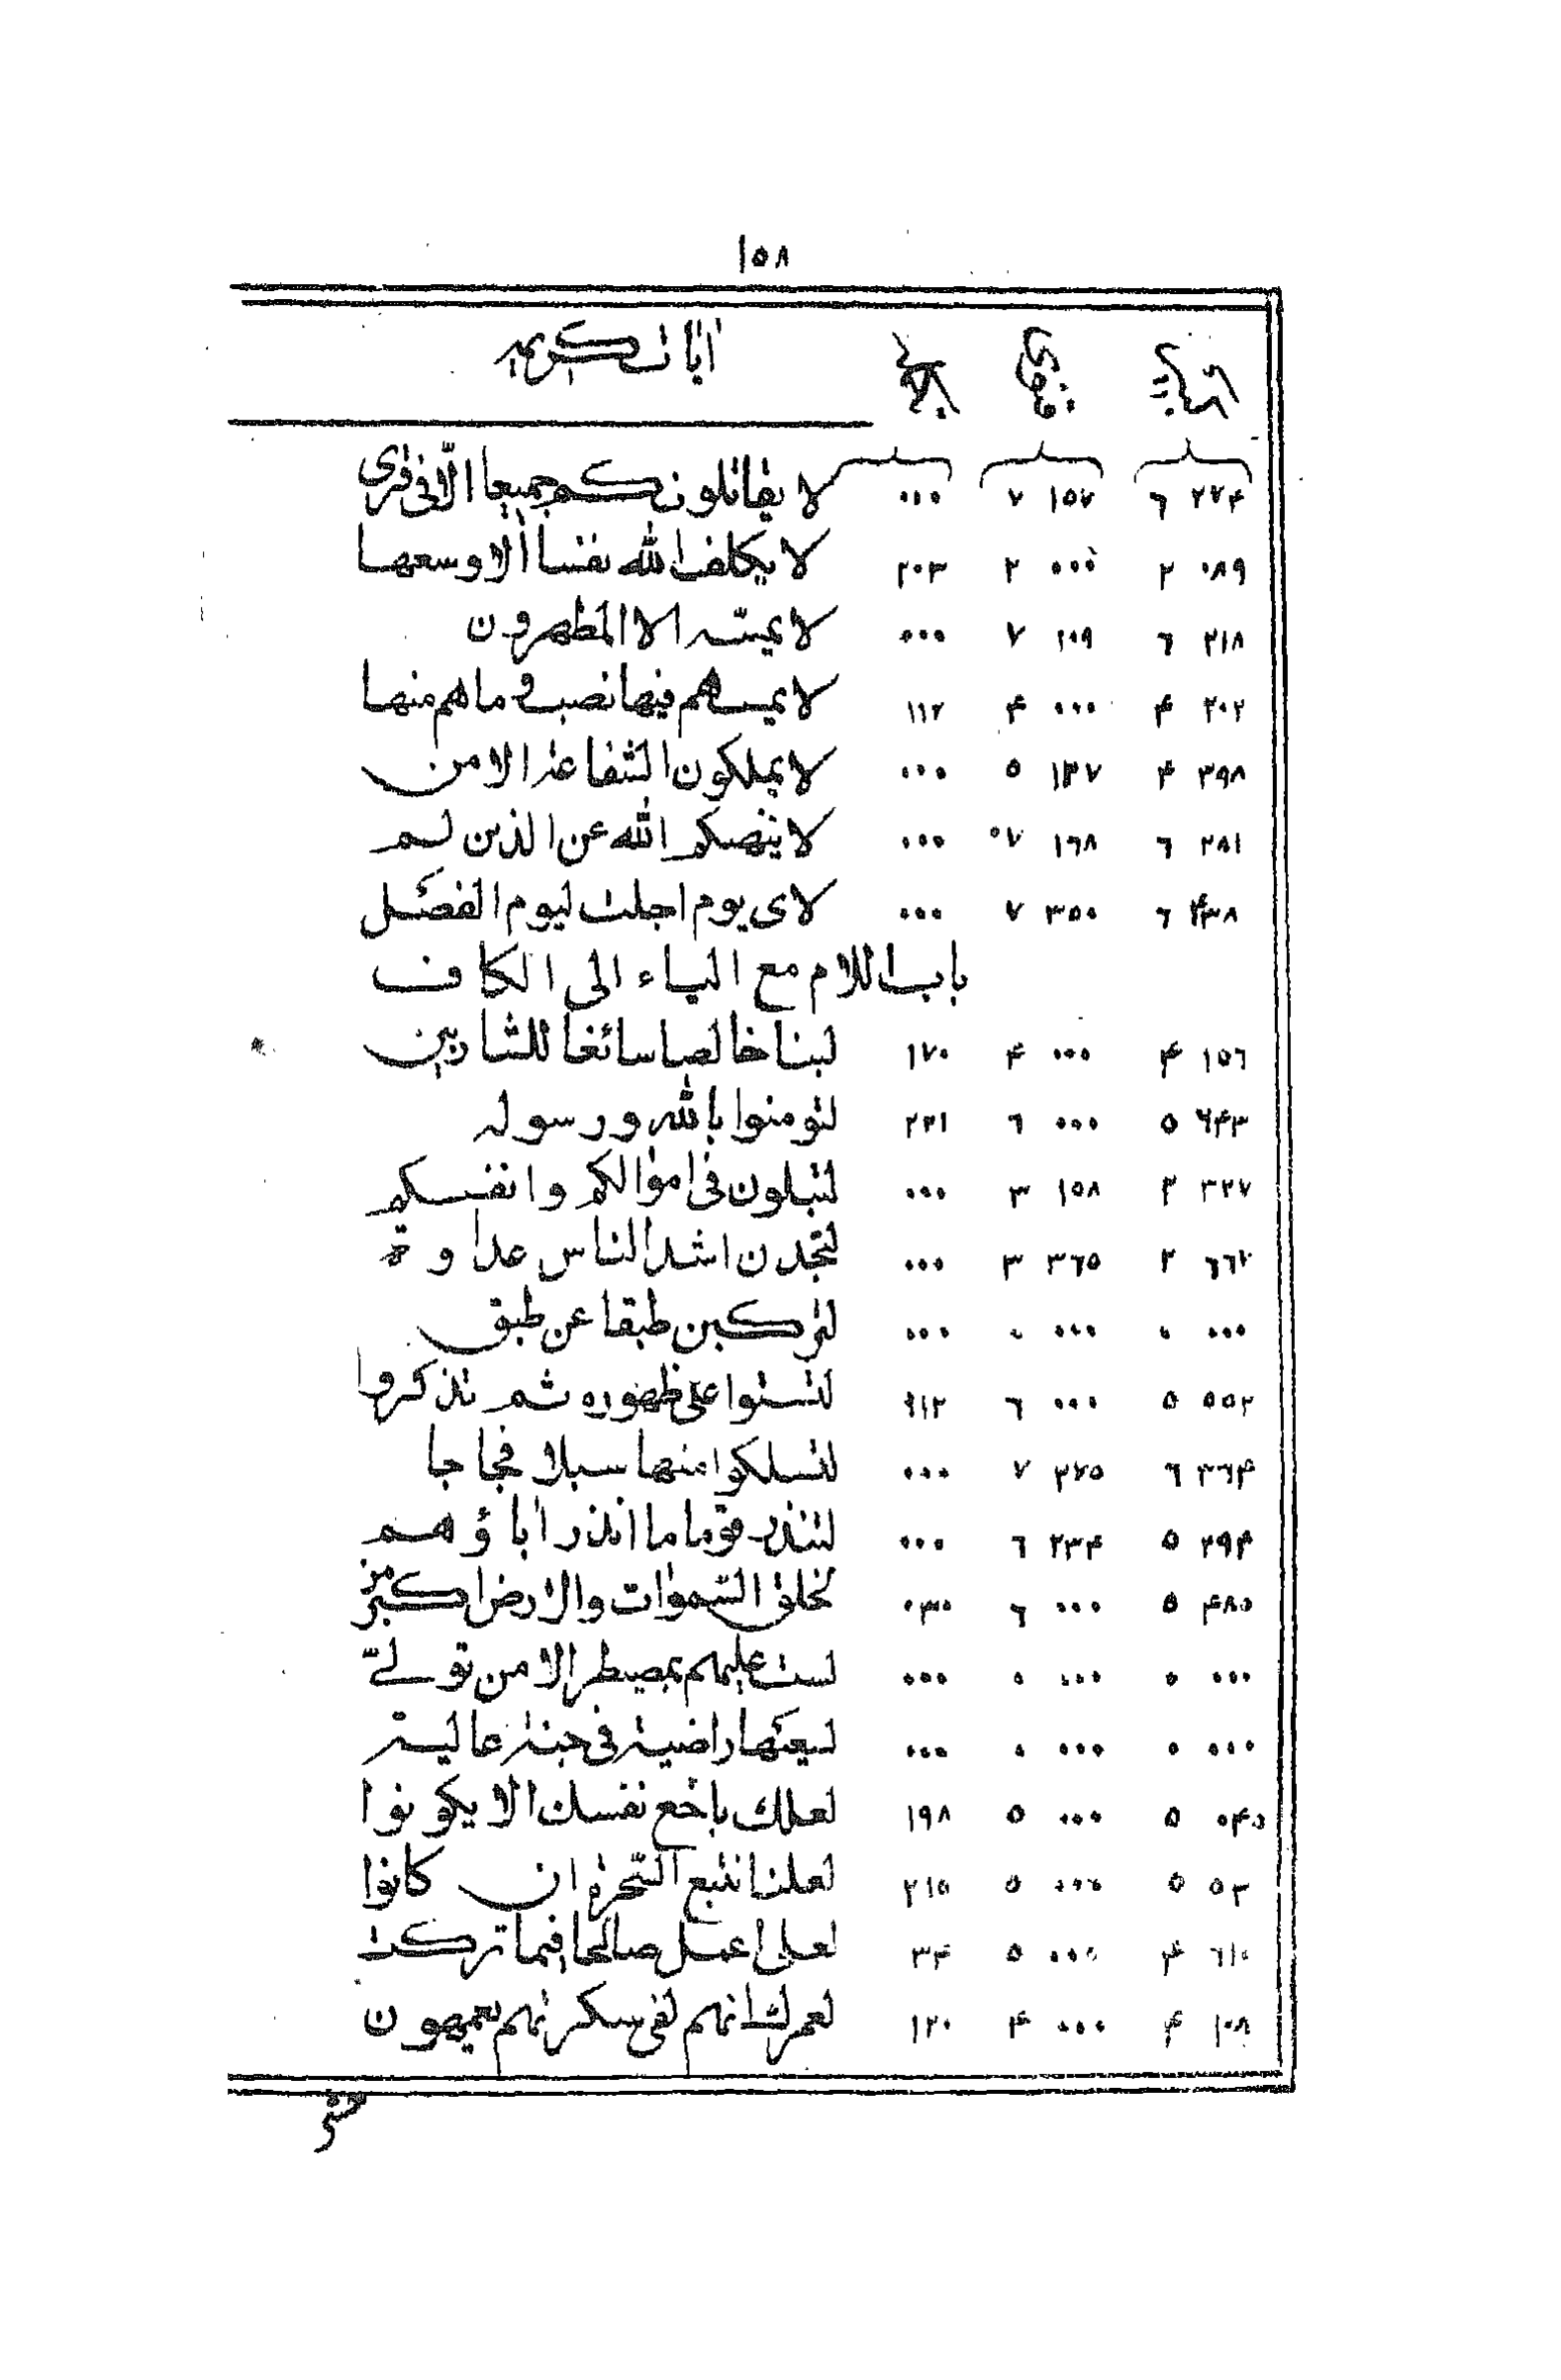 ١٥٨
ايات كريمه
٢٧٤ ٦ ١٥٧ ٧ ٠٠٠ لا يقاتلونكم جميعا الّا فى قرى
٠٨٩ ٢ ٠٠٠ ٢ ٢٠٣ لا يكلف الله نفسا الا وسعها
٢١٨ ٦ ١٠٩ ٧ ٠٠٠ لا يمسّه الا المطهرون
٢٠٢ ۴ ٠٠٠ ۴ ١١٢ لا يمسهم فيها نصب و ما هم منها
٣٩٨ ۴ ١٣٧ ٥ ٠٠٠ لا يملكون الشفاعة الا من
٢٨١ ٦ ١٦٨ ٧ ٠٠٠ لا ينهيكم الله عن الذين لم
۴٣٨ ٦ ٣٥٠ ٧ ٠٠٠ لاى يوم اجلت ليوم الفصل
باب اللام مع الياء الى الكاف
١٥٦ ۴ ٠٠٠ ۴ ١٧٠ لبنا خالصا سائغا للشاربين
٦۴٣ ٥ ٠٠٠ ٦ ٢٣١ لتومنوا بالله و رسوله
٣٢٧ ٢ ١٥٨ ٣ ٠٠٠ لتبلون فى اموالكم وانفسكم
٦٦٧ ٢ ٣٦٥ ٣ ٠٠٠ لتجدن اشد الناس عداوة
٠٠٠ ٠ ٠٠٠ ٠ ٠٠٠ لتركبن طبقا عن طبق
٥٥٢ ٥ ٠٠٠ ٦ ١١٢ لتستوا على ظهوره ثم تذكروا
٣٦۴ ٦ ٢٧٥ ٧ ٠٠٠ لتسلكوا منها سبلا فجاجا
٢٩۴ ٥ ٢٣۴ ٦ ٠٠٠ لتنذر قوما ما انذر اباؤهم
۴٨٥ ٥ ٠٠٠ ٦ ٠٣٠ لخلق السّموات والارض اكبر من
٠٠٠ ٠ ٠٠٠ ٠ ٠٠٠ لست عليهم بمصيطر الا من تولّى
٠٠٠ ٠ ٠٠٠ ٠ ٠٠٠ لسعيها راضية فى جنة عالية
٠۴٥ ٥ ٠٠٠ ٥ ١٩٨ لعلك باخع نفسك الا يكونوا
٥٣ ٥ ٠٠٠ ٥ ٢١٥ لعلنا نتبع السّحرة ان كانوا
٦١٠ ۴ ٠٠٠ ٥ ٣۴ لعلى اعمل صالحا فيما تركت
١٠٨ ۴ ٠٠٠ ۴ ١٢٠ لعمرك انهم لفى سكرتهم يعمهون